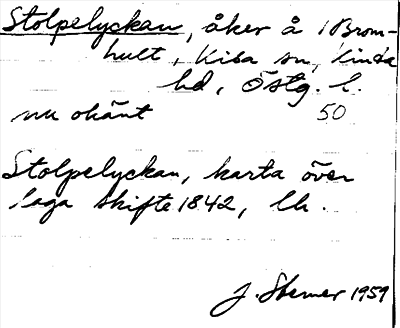 Stolpelyckan, åker å Brom-
hult, Kisa sn, Kinda
hd, Östg. l.
nu okänt 50
Stolpelyckan, karta över
laga skifte 1842, Lk.
J. Sterner 1959